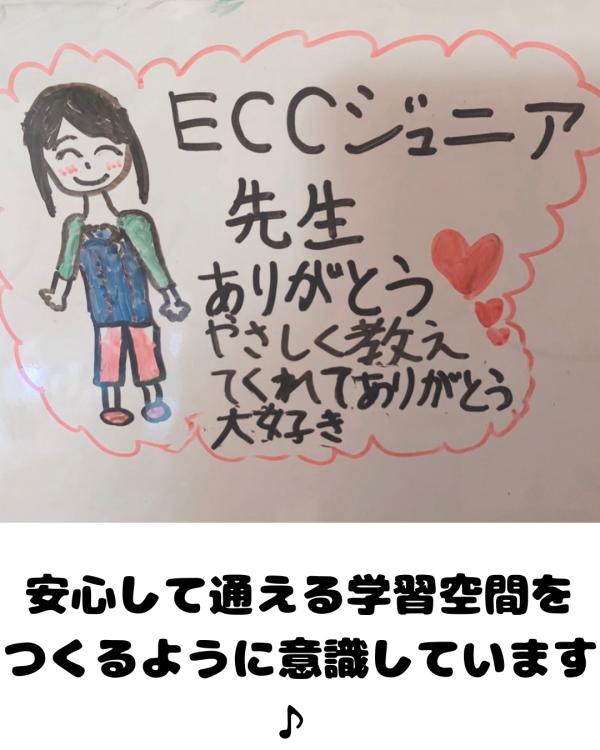 ECCジュニア
先生
ありがとう
やさしく教え
てくれてありがとう
大好き
安心して通える学習空間を
つくるように意識しています
♪